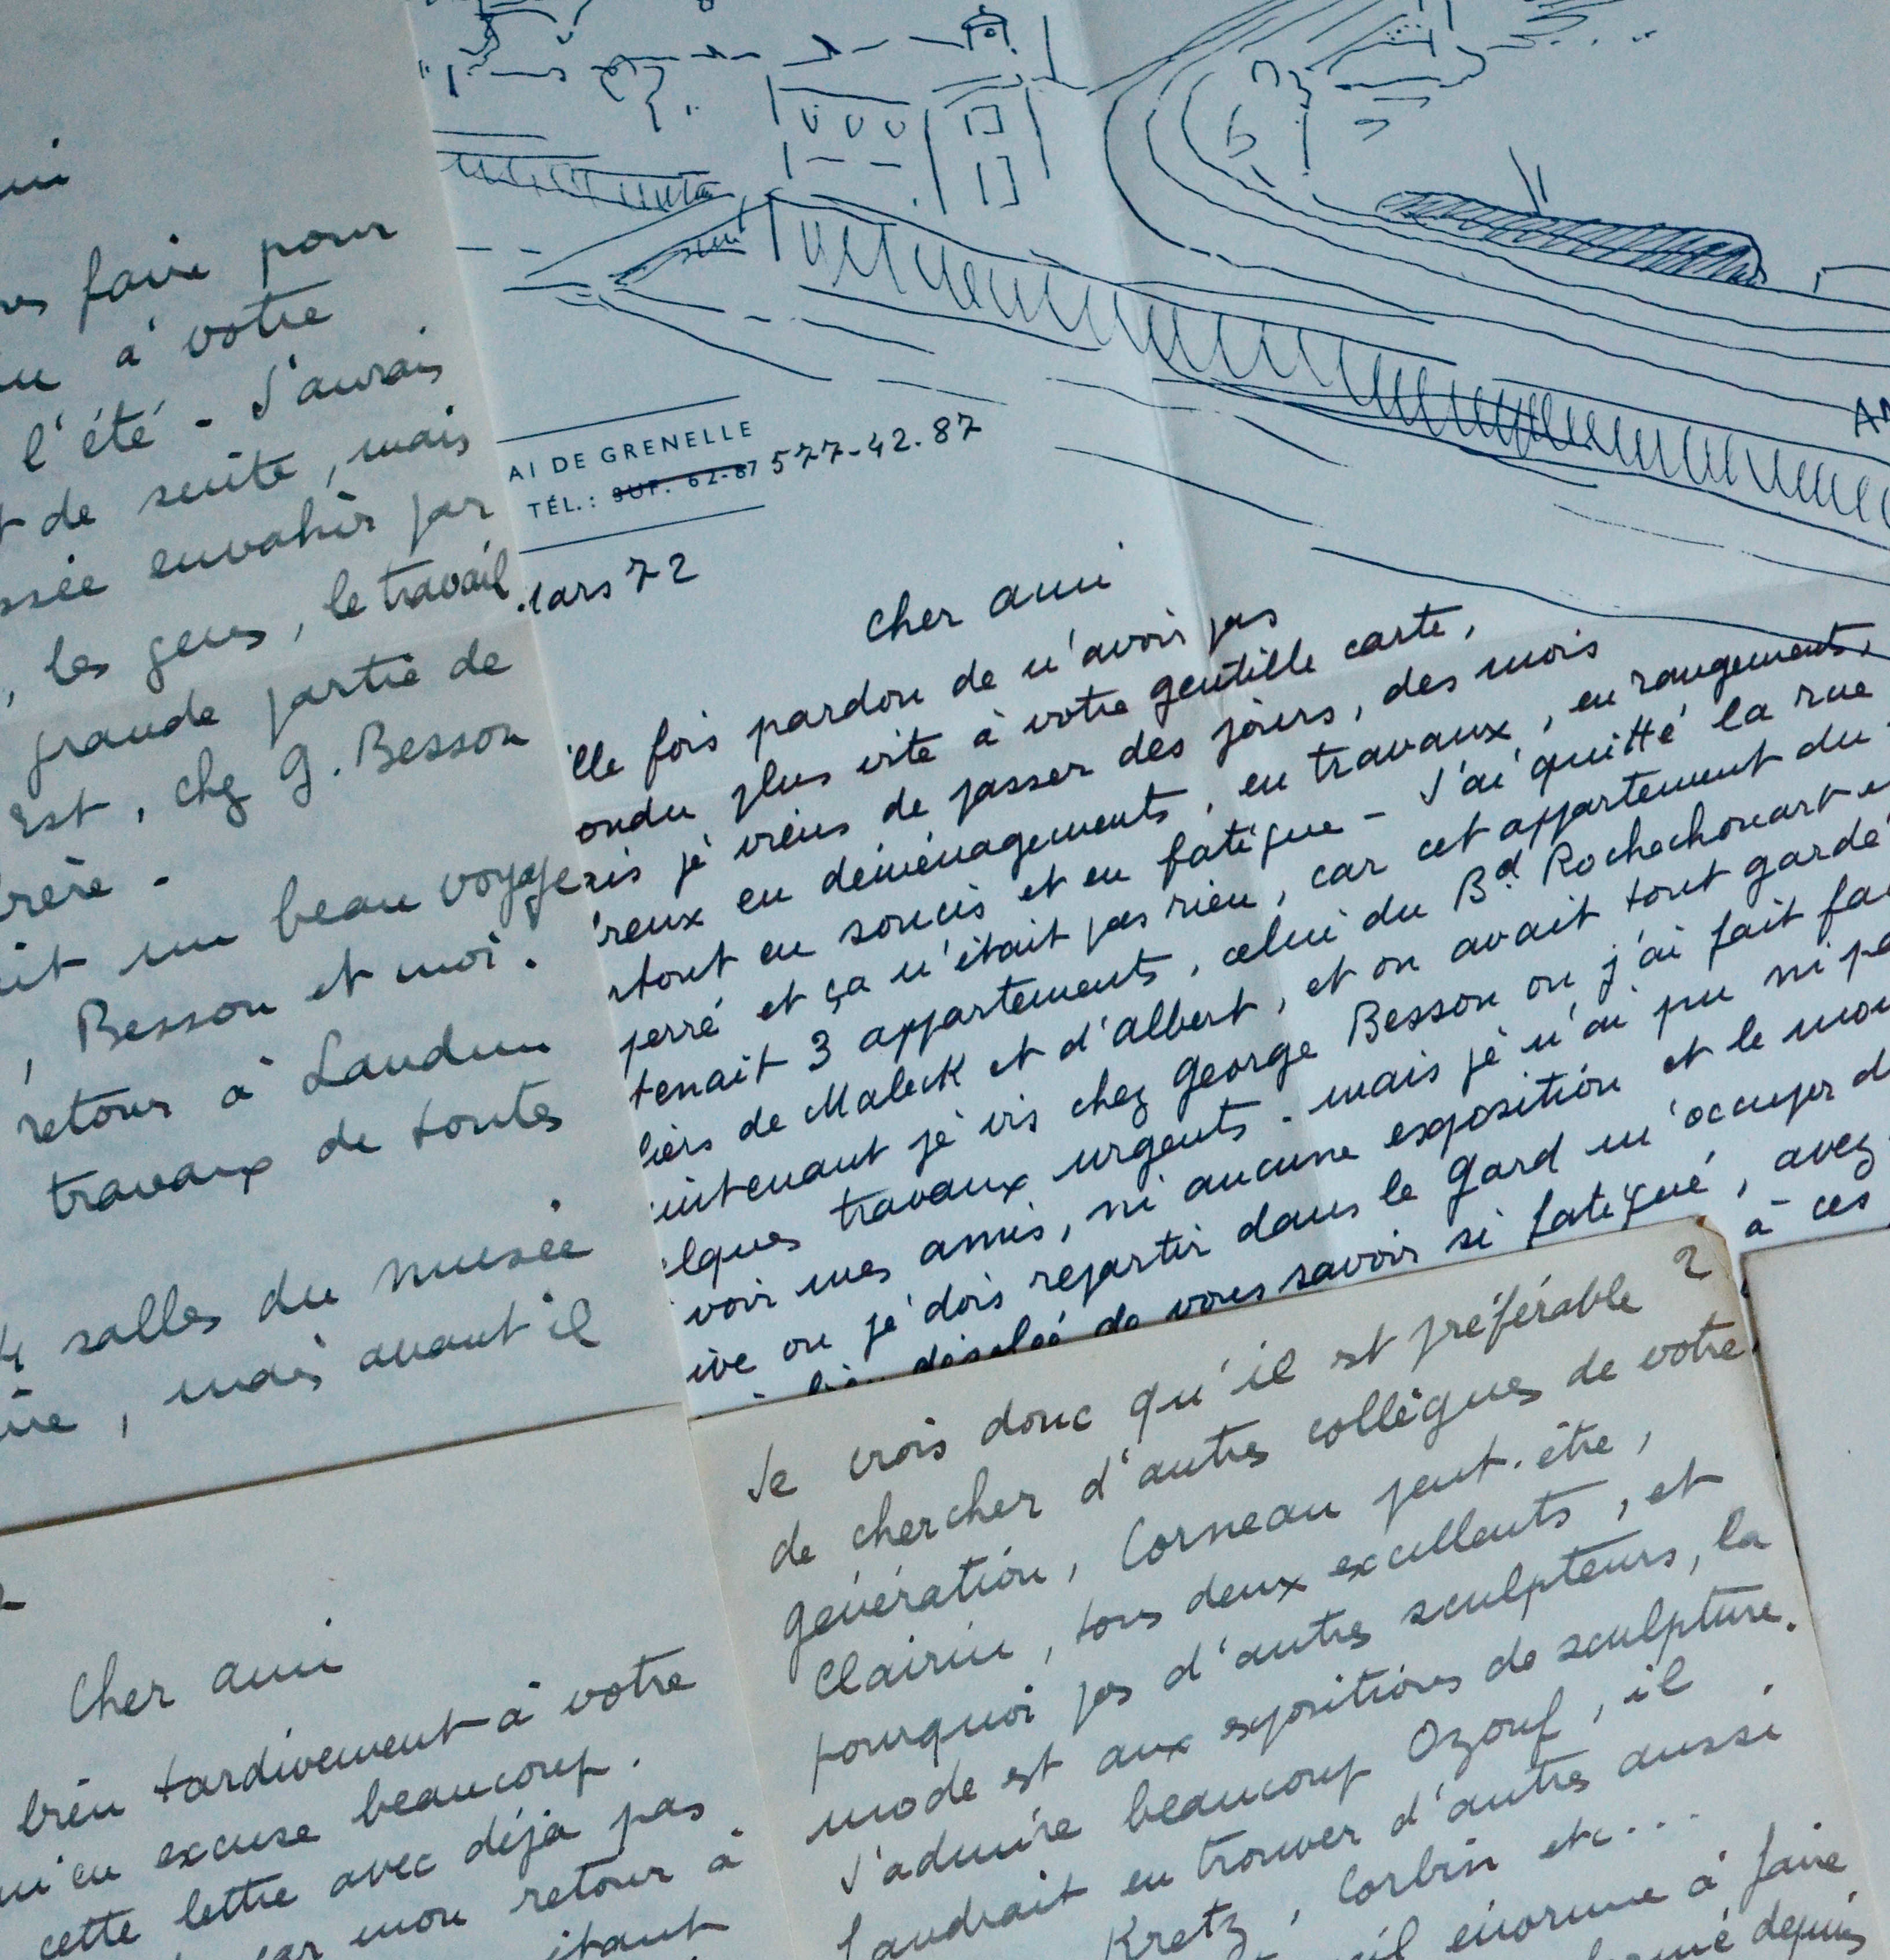 faire pour
à votre
l'été - J'aurais
de suite, mais
envahir par
, les gens, le travail
grande partie de
Est, chez G. Besson
un beau voyage
, Besson et moi.
retour à Laudun
travaux de toutes
salles du musée
, mais avant il
AI DE GRENELLE
TÉL.: SUF. 62-87 577-42.87
ars 72
AN
cher ami
lle fois pardon de n'avoir pas
ondu plus vite à votre gentille carte,
is je viens de passer des jours, des mois
reux en déménagements, en travaux, en rangements,
rtout en soucis et en fatigue - J'ai quitté la rue
perré et ça n'était pas rien, car cet appartement du
tenait 3 appartements, celui du Bd Rochechouart
liers de Maleck et d'Albert, et on avait tout gardé
intenant je vis chez George Besson ou j'ai fait fai
elques travaux urgents - mais je n'ai pu ni
voir mes amis, ni aucune exposition et le
ive ou je dois repartir dans le Gard m'occuper d
désolée de vous savoir si fatigué, avez
à ces
2
Je crois donc qu'il est préférable
de chercher d'autres collègues de votre
génération, Corneau peut-être,
Clairin, tous deux excellents, et
pourquoi pas d'autres sculpteurs, la
mode est aux expositions de sculpture.
J'admire beaucoup Ozouf, il
faudrait en trouver d'autres aussi
Kretz, Corbin etc...
énorme à faire
depuis
Cher ami
bien tardivement à votre
m'en excuse beaucoup.
cette lettre avec déjà pas
car mon retour à